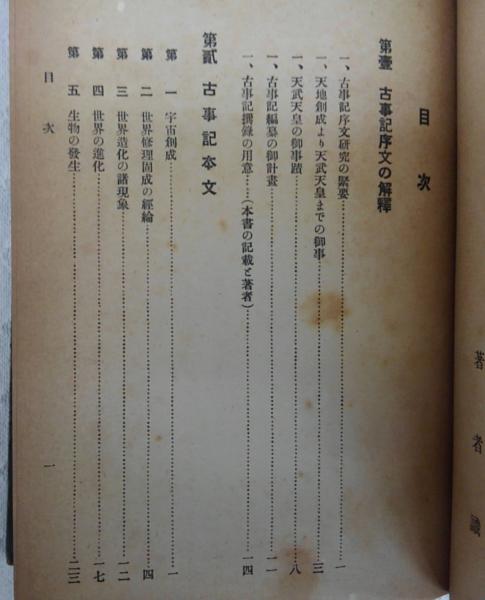 著者識
目次
第壹 古事記序文の解釋
一、古事記序文研究の緊要……一
一、天地創成より天武天皇までの御事……三
一、天武天皇の御事蹟……八
一、古事記編纂の御計畫……一一
一、古事記撰錄の用意……(本書の記載と著者)……一四
第貳 古事記本文
第一 宇宙創成……一
第二 世界修理固成の經綸……四
第三 世界造化の諸現象……一二
第四 世界の進化……一七
第五 生物の發生……二三
目次 一